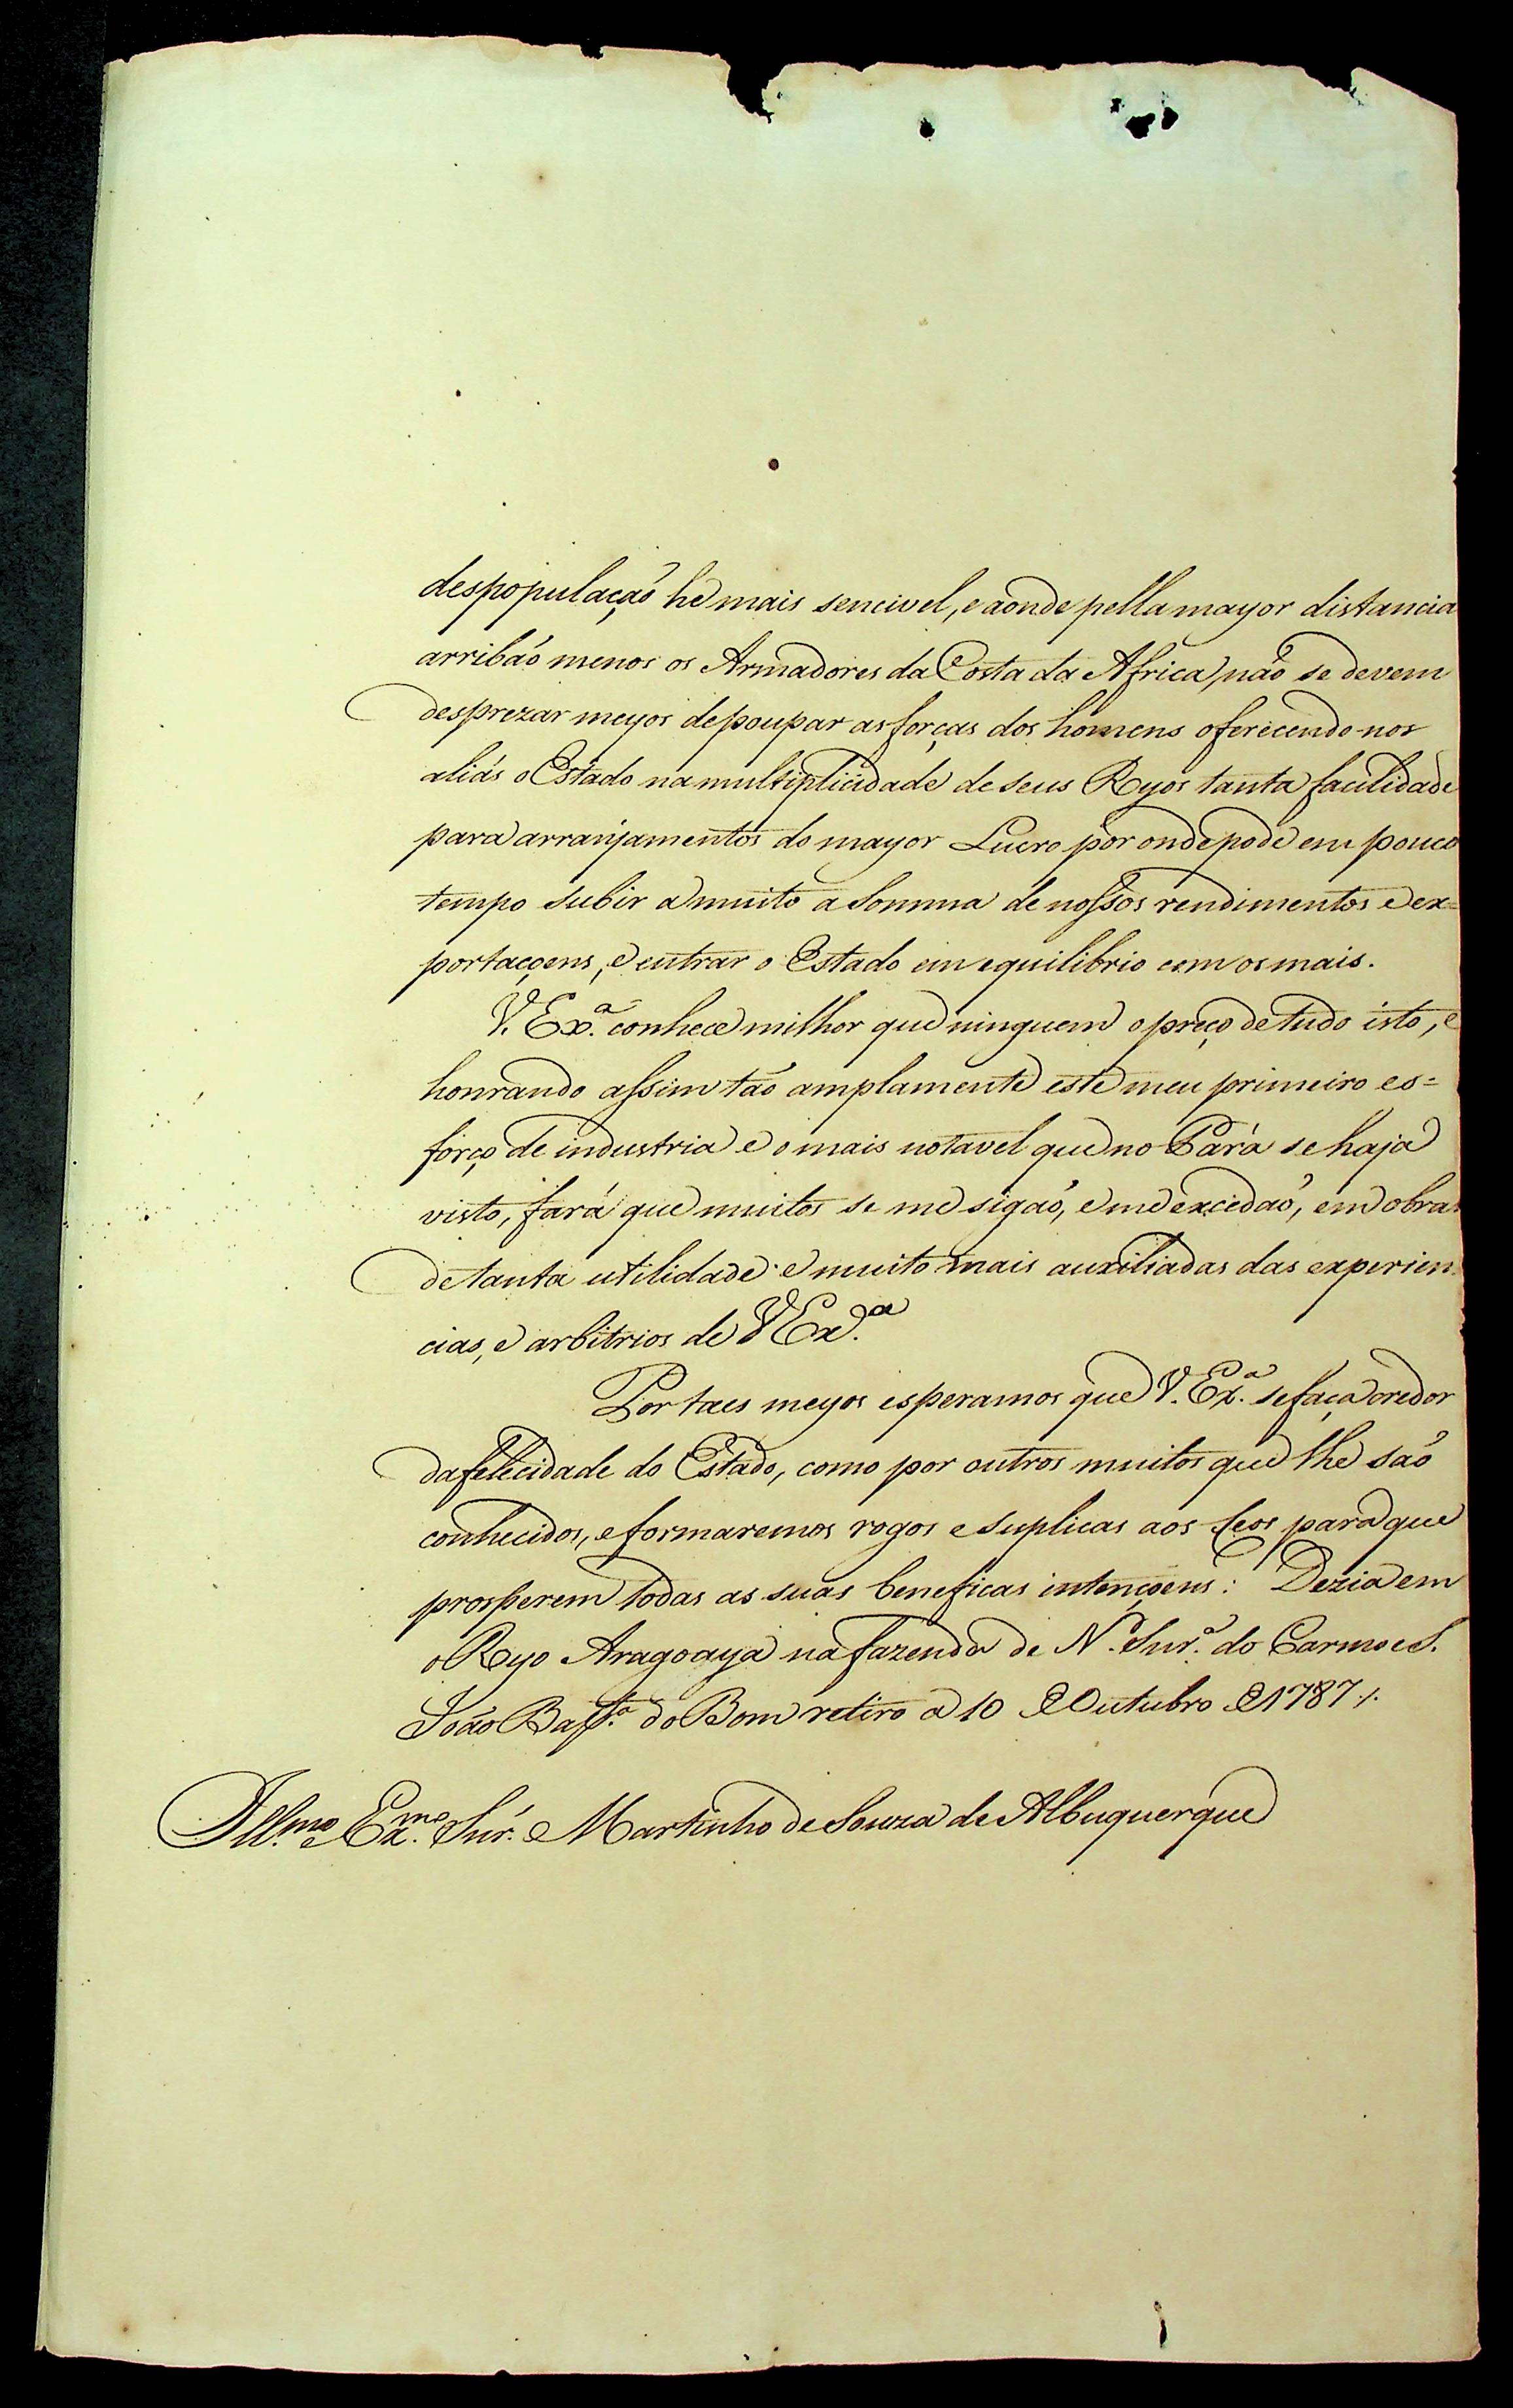 despopulação he mais sencivel, e aonde pella mayor distancia
arribão menos os Armadores da Costa da Africa, não se devem
desprezar meyos de poupar as forças dos homens oferecendo-nos
aliás o Estado na multiplicidade de seus Ryos tanta facilidade
para arranjamentos do mayor Lucro por onde pode em pouco
tempo subir a muito a Somma de nossos rendimentos e ex=
portaçoens, e entrar o Estado em equilibrio com os mais.
V. Ex.ª conhece milhor que ninguem o preço de tudo isto, e
honrando assim tão amplamente este meu primeiro es=
forço de industria e o mais notavel que no Pará se haja
visto, fará que muitos se me sigão, e me excedão, em obras
de tanta utilidade e muito mais auxiliadas das experien
cias, e arbitrios de V Ex.ª
Por taes meyos esperamos que V. Ex.ª se faça credor
da felecidade do Estado, como por outros muitos que lhe são
conhecidos, e formaremos rogos e suplicas aos Ceos para que
prosperem todas as suas beneficas intençoens: Dezia em
o Ryo Aragoaya na fazenda de N. Snr.ª do Carmo e S.
João Bap.ta do Bom retiro a 10 de Outubro de 1787 /.
Ill.mo e Ex.mo Snr. Martinho de Souza de Albuquerque